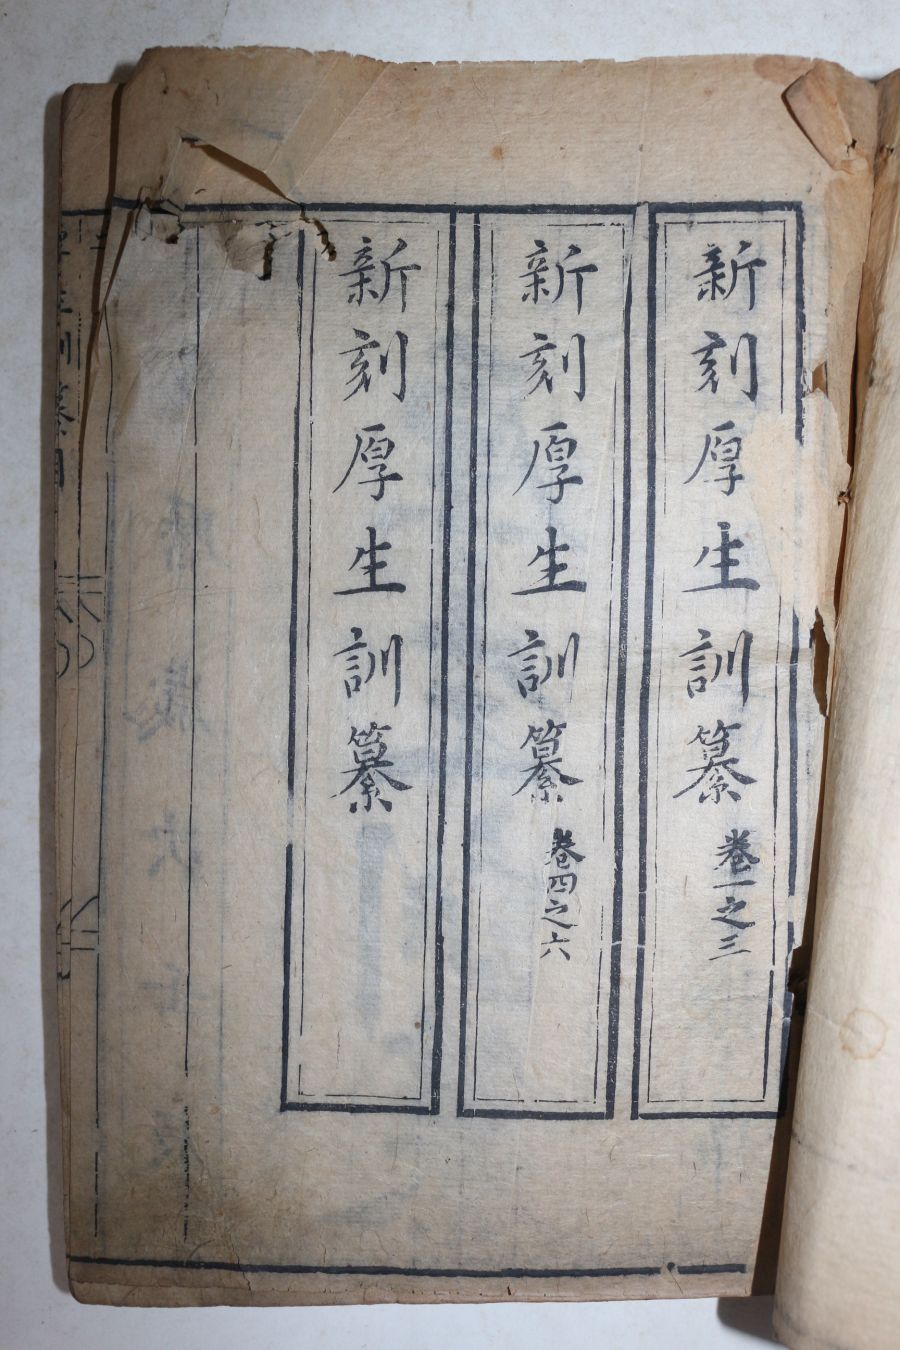 新刻厚生訓纂 卷一之三
新刻厚生訓纂 卷四之六
新刻厚生訓纂